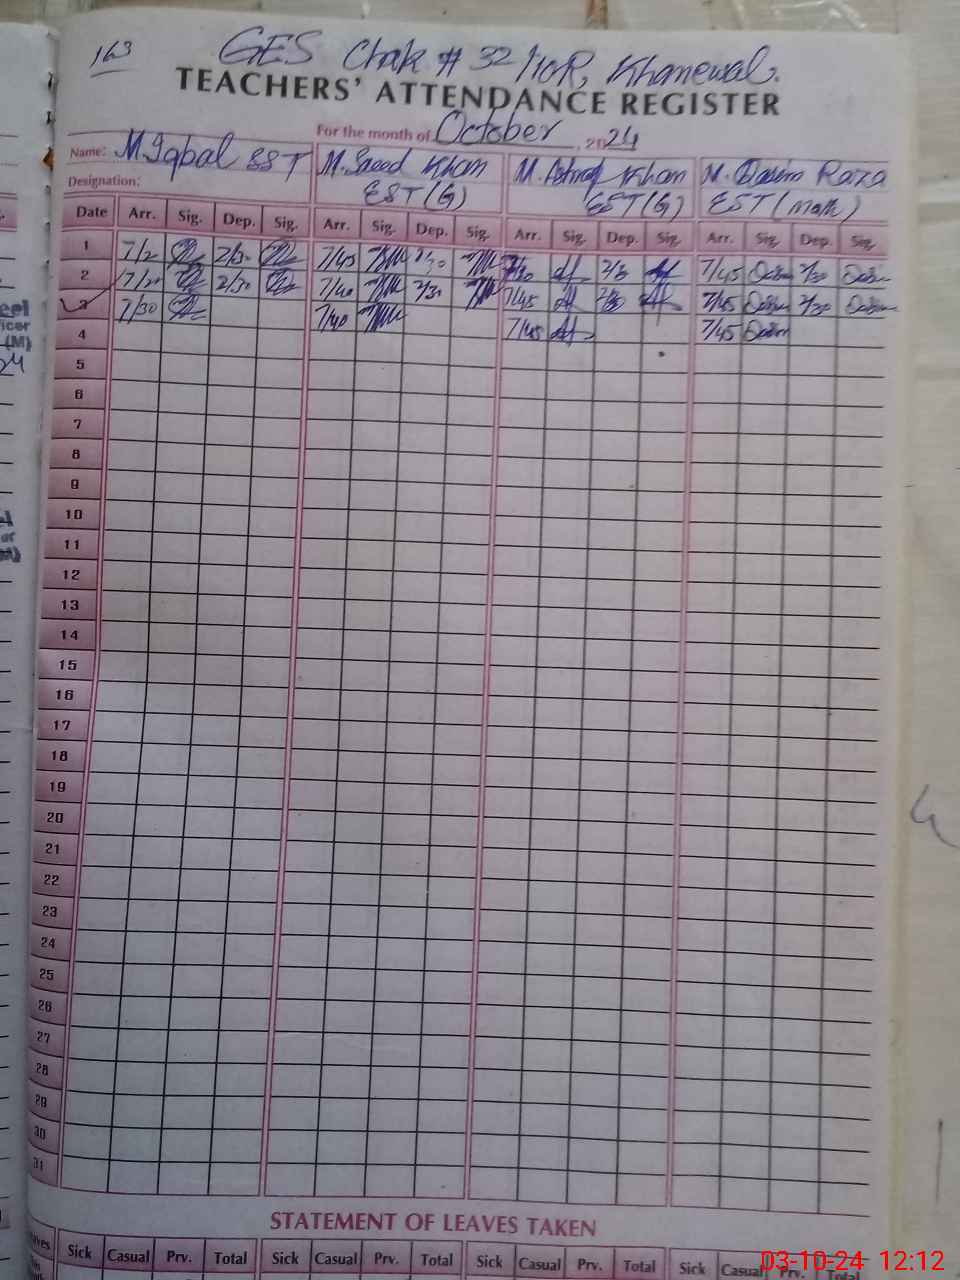 163 GES Chak # 32/10R, Khanewal.
TEACHERS' ATTENDANCE REGISTER
For the month of October, 2024
Name: M. Iqbal SST M. Saeed Khan M. Ashraf Khan M. Qasim Raza
Designation: EST(G) EST(G) EST(Math)
Date Arr. Sig. Dep. Sig. Arr. Sig. Dep. Sig. Arr. Sig. Dep. Sig. Arr. Sig. Dep. Sig.
1 2/30 7/45 2/30 7/45 Qasim 2/30 Qasim
2 2/30 7/40 2/30 7/45 7/45 Qasim 2/30 Qasim
3 7/30 7/40 7/45 7/45 Qasim
4
5
6
7
8
9
10
11
12
13
14
15
16
17
18
19
20
21
22
23
24
25
26
27
28
29
30
31
STATEMENT OF LEAVES TAKEN
Sick Casual Prv. Total Sick Casual Prv. Total Sick Casual Prv. Total Sick Casual Prv. Total
03-10-24 12:12